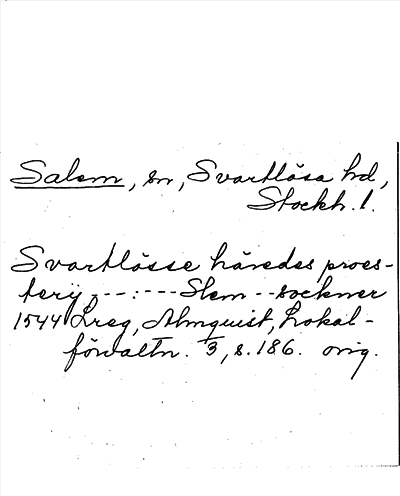 Salem, sn, Svartlösa hd,
Stockh. l.
Svartlösse häredes proes-
terij ---:--- Slem -- sockner
1544 Lreg, Almquist, Lokal-
förvaltn. 3, s. 186. orig.